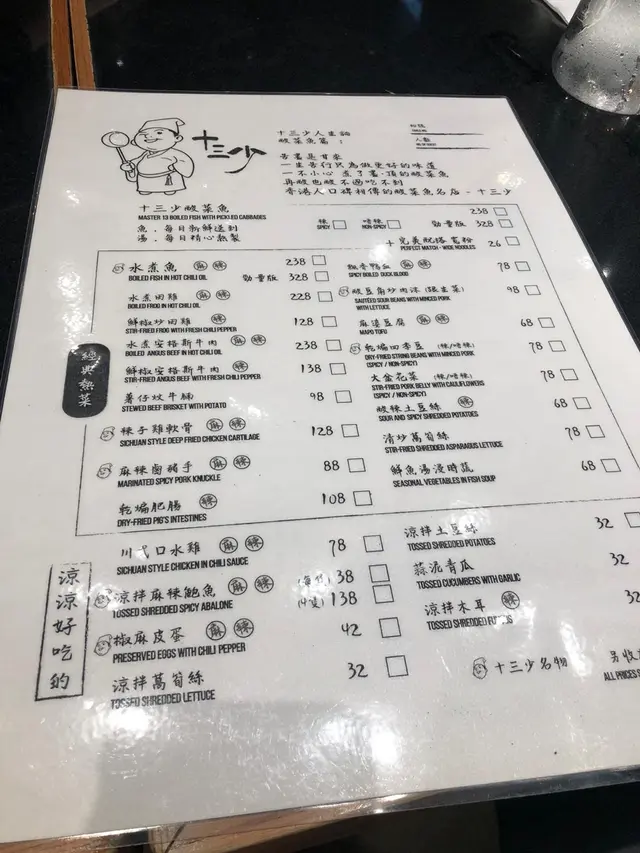 十三少
十三少人生論
酸菜魚篇：
苦盡是甘來
一生苦行只為做更好的味道
一不小心 煮了畫·頂的酸菜魚
再酸也酸不過吃不到
香港人口碑相傳的酸菜魚名店·十三少
十三少酸菜魚 238
MASTER 13 BOILED FISH WITH PICKLED CABBAGES
辣 SPICY 唔辣 NON-SPICY 勁量版 328
魚，每日新鮮送到
湯，每日精心熬製
+完美配搭寬粉 26
PERFECT MATCH - WIDE NOODLES
經典熱菜
水煮魚 麻 辣 238
BOILED FISH IN HOT CHILI OIL 勁量版 328
水煮田雞 麻 辣 228
BOILED FROG IN HOT CHILI OIL
鮮椒炒田雞 辣 128
STIR-FRIED FROG WITH FRESH CHILI PEPPER
水煮安格斯牛肉 麻 辣 238
BOILED ANGUS BEEF IN HOT CHILI OIL
鮮椒安格斯牛肉 辣 138
STIR-FRIED ANGUS BEEF WITH FRESH CHILI PEPPER
薯仔炆牛腩 98
STEWED BEEF BRISKET WITH POTATO
辣子雞軟骨 麻 辣 128
SICHUAN STYLE DEEP FRIED CHICKEN CARTILAGE
麻辣鹵豬手 麻 辣 88
MARINATED SPICY PORK KNUCKLE
乾煸肥腸 辣 108
DRY-FRIED PIG'S INTESTINES
飄香鴨血 麻 辣 78
SPICY BOILED DUCK BLOOD
酸豆角炒肉沫（跟生菜） 98
SAUTÉED SOUR BEANS WITH MINCED PORK
WITH LETTUCE
麻婆豆腐 麻 辣 68
MAPO TOFU
乾煸四季豆 （辣/唔辣） 78
DRY-FRIED STRING BEANS WITH MINCED PORK
(SPICY / NON-SPICY)
大盆花菜 （辣/唔辣） 78
STIR-FRIED PORK BELLY WITH CAULIFLOWERS
(SPICY / NON-SPICY)
酸辣土豆絲 辣 68
SOUR AND SPICY SHREDDED POTATOES
清炒萵筍絲 78
STIR-FRIED SHREDDED ASPARAGUS LETTUCE
鮮魚湯浸時蔬 68
SEASONAL VEGETABLES IN FISH SOUP
涼涼好吃的
川式口水雞 麻 辣 78
SICHUAN STYLE CHICKEN IN CHILI SAUCE
涼拌麻辣鮑魚 麻 辣 38
TOSSED SHREDDED SPICY ABALONE (4隻) 138
椒麻皮蛋 麻 辣 42
PRESERVED EGGS WITH CHILI PEPPER
涼拌萵筍絲 32
TOSSED SHREDDED LETTUCE
涼拌土豆絲 32
TOSSED SHREDDED POTATOES
蒜泥青瓜 32
TOSSED CUCUMBERS WITH GARLIC
涼拌木耳 辣 32
TOSSED SHREDDED
十三少名物
另收
ALL PRICES